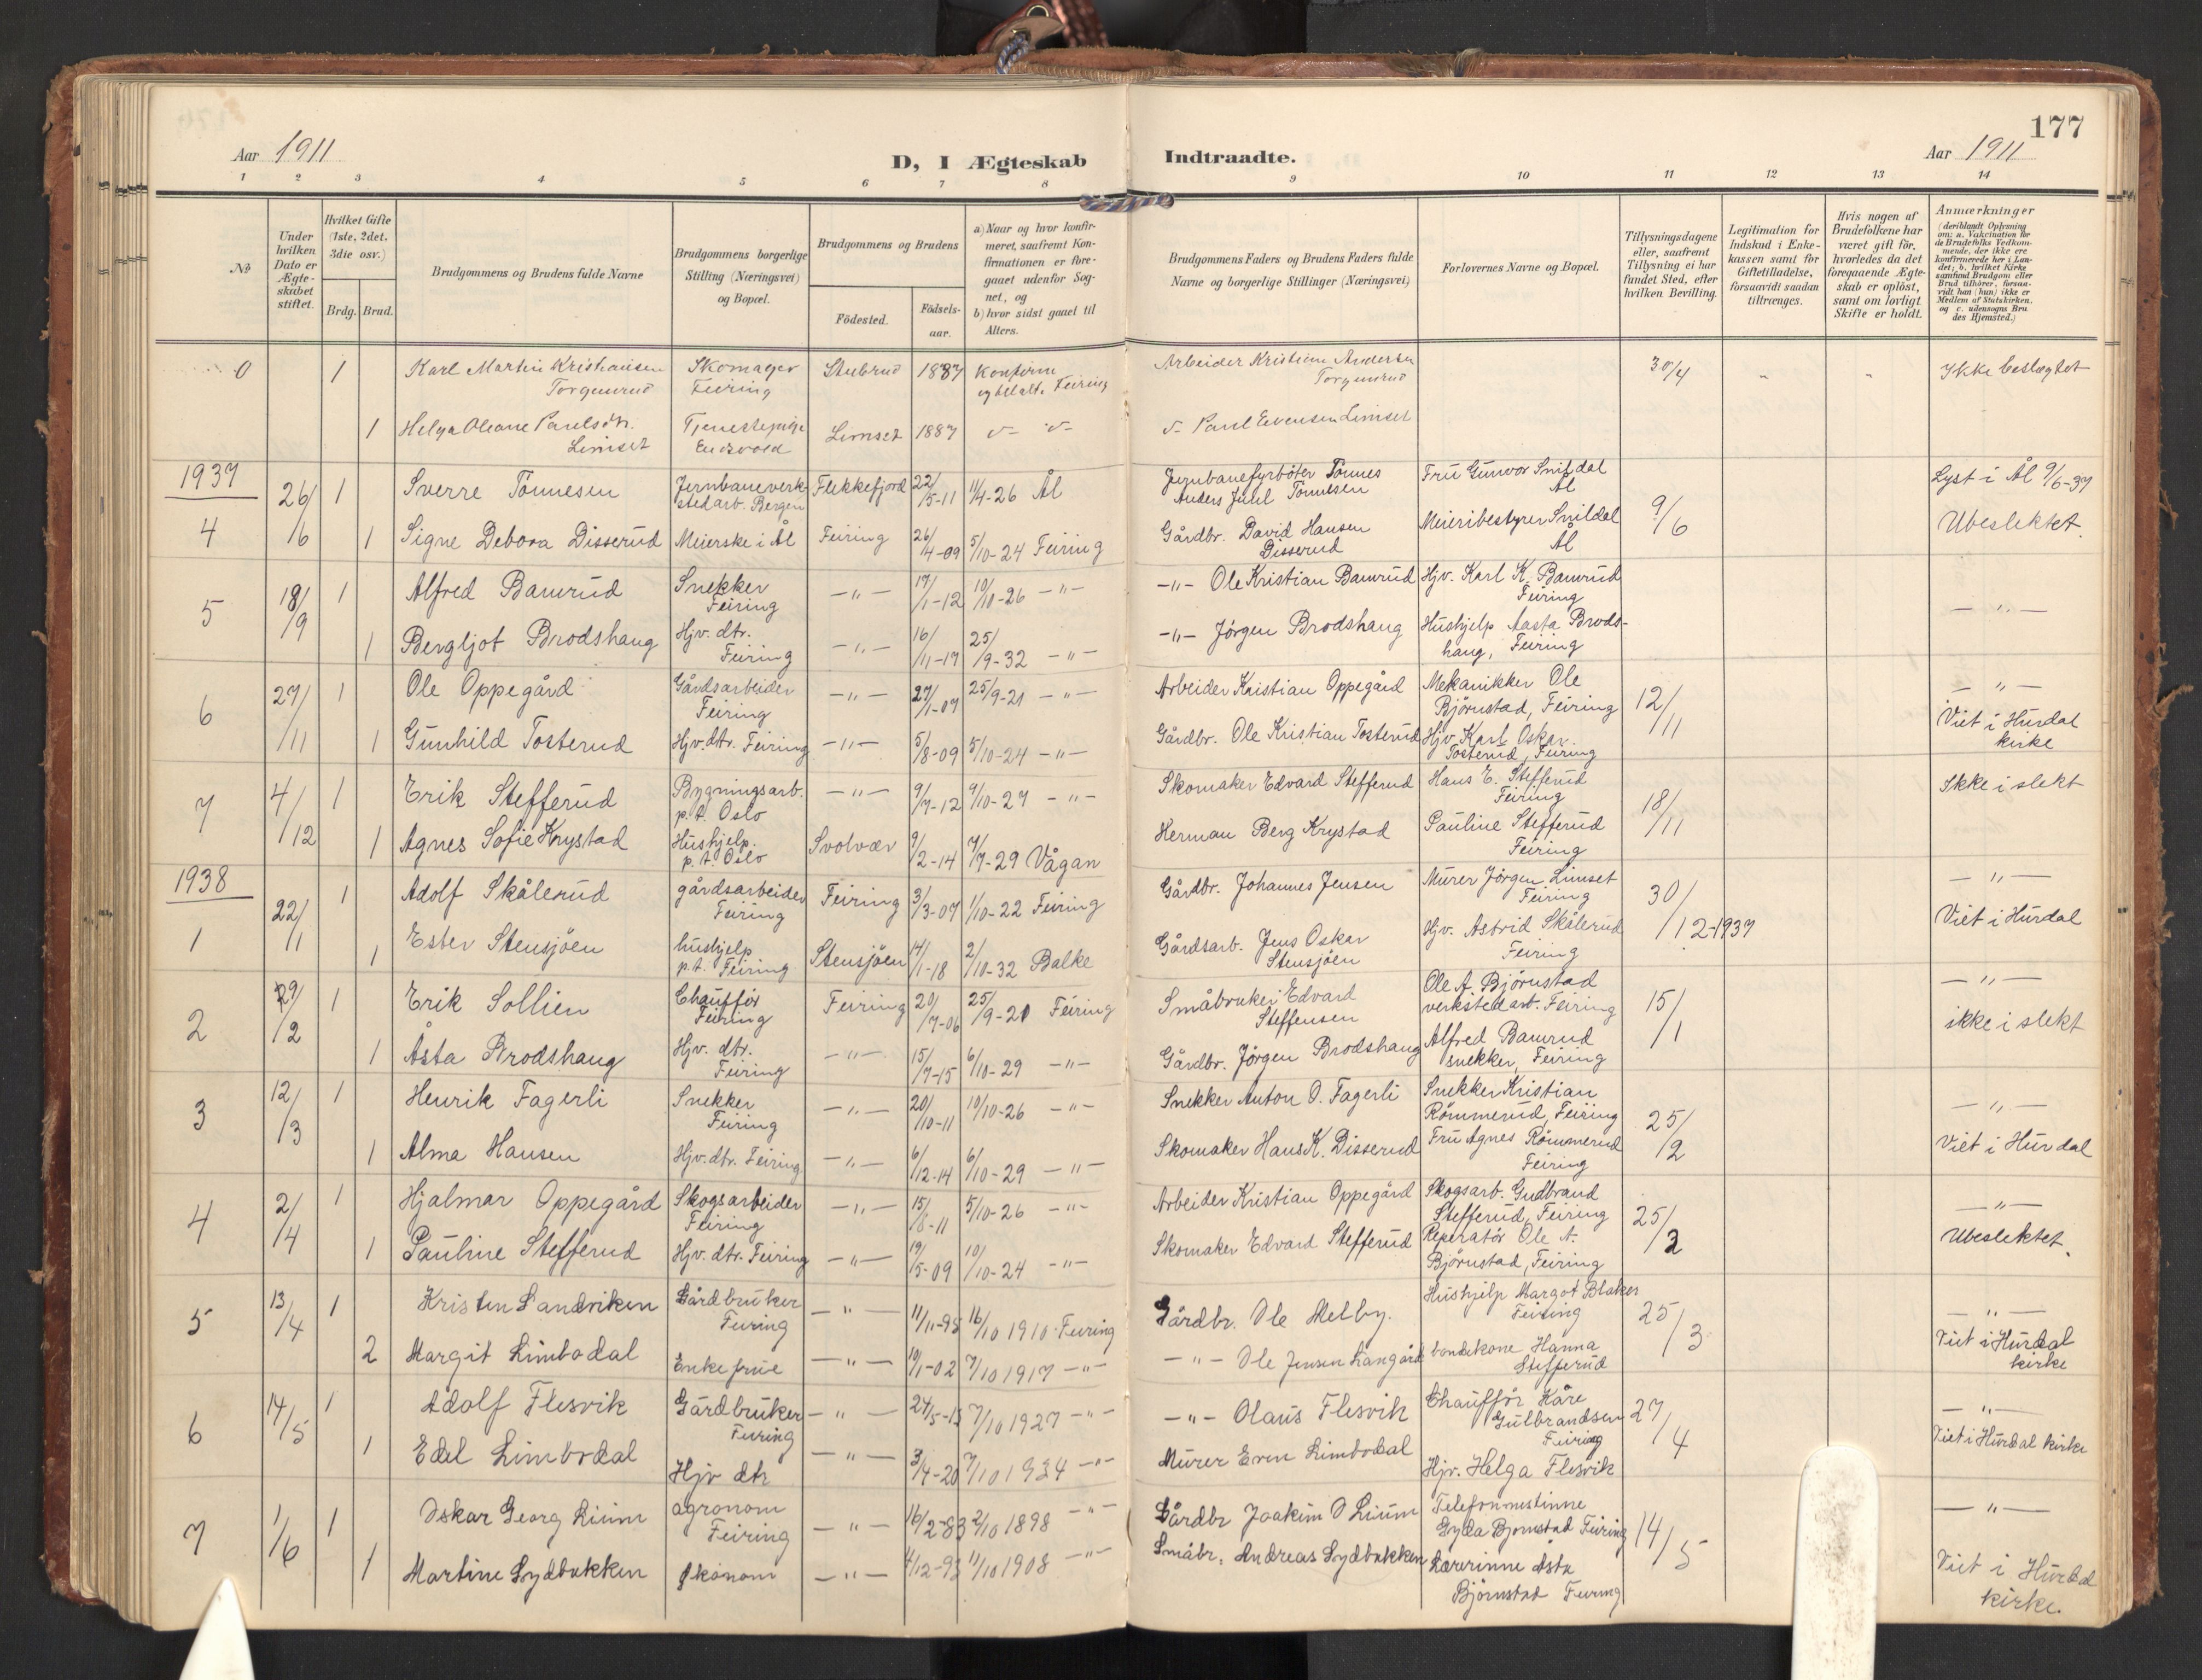 177
Aar 1911
D, I Ægteskab
Indtraadte.
Aar 1911
1 2 3 4 5 6 7 8 9 10 11 12 13 14
No
Under hvilken Dato er Ægteskabet stiftet.
Hvilket Gifte (1ste, 2det, 3die osv.)
Brdg. Brud.
Brudgommens og Brudens fulde Navne
Brudgommens borgerlige Stilling (Næringsvei) og Bopæl.
Brudgommens og Brudens
Födested.
Födsels-aar.
a) Naar og hvor konfirmeret, saafremt Konfirmationen er foregaaet udenfor Sognet, og
b) hvor sidst gaaet til Alters.
Brudgommens Faders og Brudens Faders fulde Navne og borgerlige Stillinger (Næringsvei)
Forlovernes Navne og Bopæl.
Tillysningsdagene eller, saafremt Tillysning ei har fundet Sted, efter hvilken Bevilling.
Legitimation for Indskud i Enkekassen samt for Giftetilladelse, forsaavidt saadan tiltrænges.
Hvis nogen af Brudefolkene har været gift för, hvorledes da det foregaaende Ægteskab er oplöst, samt om lovligt Skifte er holdt.
Anmærkninger (deriblandt Oplysning om: a. Vakcination for de Brudefolks Vedkommende, der ikke ere konfirmerede her i Landet; b. hvilket Kirkesamfund Brudgom eller Brud tilhörer, forsaavidt han (hun) ikke er Medlem af Statskirken, og c. udensogns Brudes Hjemsted.)
0 1 Karl Martin Kristiansen Torgunrud Skomager Feiring Stubrud 1887 Konfirm og bet alt. Feiring Arbeider Kristian Andersen Torgunrud 30/4 " " Ikke beslægtet
1 Helga Oleane Paulsdtr. Limset Tjenestepige Eidsvold Limset 1887 Paul Evensen Limset
1937
4 26/6 1 Sverre Tönnesen Jernbaneverkstedarb. Bergen Flekkefjord 22/5-11 11/4-26 Ål Jernbanefyrböter Tönnes Anders Juul Tönnesen Fru Gunvor Snildal Ål 9/6 Lyst i Ål 9/6-37
1 Signe Debora Disserud Meierske i Ål Feiring 26/4-09 5/10-24 Feiring Gårdbr. David Hansen Disserud Meieribestyrer Snildal Ål Ubeslektet.
5 18/9 1 Alfred Bamrud Snekker Feiring -"- 17/1-12 10/10-26 -"- -"- Ole Kristian Bamrud Hjv. Karl K. Bamrud Feiring -"-
1 Bergljot Brodshaug Hjv. dtr. Feiring -"- 16/11-17 25/9-32 -"- -"- Jörgen Brodshaug Hushjelp Aasta Brodshaug, Feiring
6 27/11 1 Ole Oppegård Gårdsarbeider Feiring -"- 27/1-07 25/9-21 -"- Arbeider Kristian Oppegård Mekanikker Ole Björnstad, Feiring 12/11 -"-
1 Gunhild Tosterud Hjv. dtr. Feiring -"- 5/8-09 5/10-24 -"- Gårdbr. Ole Kristian Tosterud Hjv. Karl Oskar Tosterud, Feiring Viet i Hurdal kirke
7 4/12 1 Erik Stefferud Bygningsarb. p.t. Oslo -"- 9/7-12 9/10-27 -"- Skomaker Edvard Stefferud Hans E. Stefferud Feiring 18/11 Ikke i slekt
1 Agnes Sofie Krystad Hushjelp. p.t. Oslo Svolvær 9/2-14 7/7-29 Vågan Herman Berg Krystad Pauline Stefferud Feiring
1938
1 22/1 1 Adolf Skålerud gårdsarbeider Feiring Feiring 3/3-07 1/10-22 Feiring Gårdbr. Johannes Jensen Murer Jörgen Limset Feiring 30/12-1937 -"-
1 Ester Stensjöen hushjelp p.t. Feiring Stensjöen 14/1-18 2/10-32 Balke Gårdsarb. Jens Oskar Stensjöen Hjv. Astrid Skålerud Feiring Viet i Hurdal
2 29/2 1 Erik Sollien Chaufför Feiring Feiring 20/7-06 25/9-21 Feiring Småbruker Edvard Steffensen Ole A. Björnstad verkstedarb. Feiring 15/1 -"-
1 Åsta Brodshaug Hjv. dtr. Feiring -"- 15/7-15 6/10-29 -"- Gårdbr. Jörgen Brodshaug Alfred Bamrud snekker, Feiring ikke i slekt
3 12/3 1 Henrik Fagerli Snekker Feiring -"- 20/10-11 10/10-26 -"- Snekker Anton O. Fagerli Snekker Kristian Römmerud, Feiring 25/2 -"-
1 Alma Hansen Hjv. dtr. Feiring -"- 6/12-14 6/10-29 -"- Skomaker Hans K. Disserud Fru Agnes Römmerud Feiring Viet i Hurdal
4 2/4 1 Hjalmar Oppegård Skogsarbeider Feiring -"- 15/8-11 5/10-26 -"- Arbeider Kristian Oppegård Skogsarb. Gudbrand Stefferud, Feiring 25/3 -"-
1 Pauline Stefferud Hjv. dtr. Feiring -"- 19/5-09 10/10-24 -"- Skomaker Edvard Stefferud Reperatör Ole A. Björnstad, Feiring Ubeslektet.
5 13/4 1 Kristen Sandviken Gårdbruker Feiring -"- 11/11-95 16/10 1910 Feiring Gårdbr. Ole Melby. Hushjelp Margot Blaker Feiring 25/3 -"-
2 Margit Limbodal Enkefrue -"- 10/1-02 7/10 1917 -"- -"- Ole Jensen Langård bondekone Hanna Stefferud Viet i Hurdal kirke
6 14/5 1 Adolf Flesvik Gårdbruker Feiring -"- 24/5-13 7/10 1927 -"- -"- Olaus Flesvik Chaufför Kåre Gulbrandsen Feiring 27/4 -"-
1 Edel Limbodal Hjv dtr -"- 3/7-20 7/10 1934 -"- Murer Even Limbodal Hjv. Helga Flesvik Viet i Hurdal kirke
7 1/6 1 Oskar Georg Liium agronom Feiring -"- 16/2-83 2/10 1898 -"- Gårdbr Joakim O Liium Telefonnistinne Gyda Bjornstad Feiring 14/5 -"-
1 Martine Sydbakken Økonom -"- 4/12-93 11/10 1908 -"- Småbr. Andreas Sydbakken Lærerinne Åsta Björnstad Feiring Viet i Hurdal kirke.